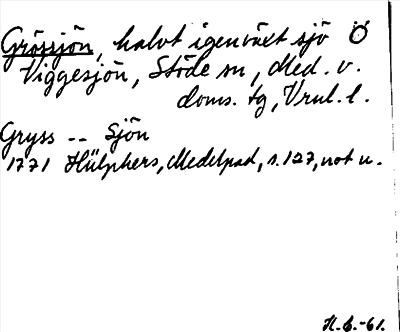 Grössjön, halvt igenväxt sjö Ö
Viggesjön, Stöde sn, Med. v.
doms. tg, Vrnl. l.
Gryss -- Sjön
1771 Hülphers, Medelpad, s. 127, not u.
H. C. -61.